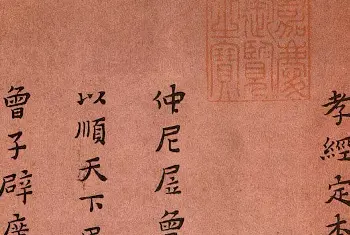 孝經定本
嘉慶
御覽
之寶
仲尼曾
以順天下
曾子辟席